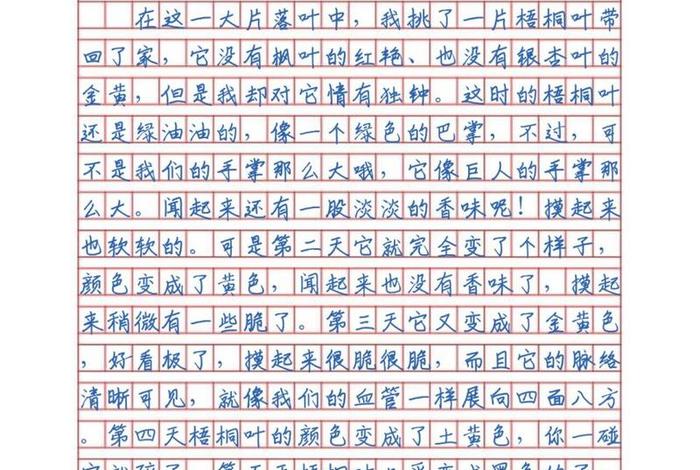 在这一大片落叶中，我挑了一片梧桐叶带
回了家，它没有枫叶的红艳、也没有银杏叶的
金黄，但是我却对它情有独钟。这时的梧桐叶
还是绿油油的，像一个绿色的巴掌，不过，可
不是我们的手掌那么大哦，它像巨人的手掌那
么大。闻起来还有一股淡淡的香味呢！摸起来
也软软的。可是第二天它就完全变了个样子，
颜色变成了黄色，闻起来也没有香味了，摸起
来稍微有一些脆了。第三天它又变成了金黄色
，好看极了，摸起来很脆很脆，而且它的脉络
清晰可见，就像我们的血管一样展向四面八方
。第四天梧桐叶的颜色变成了土黄色，你一碰
它就碎了。第五天梧桐叶